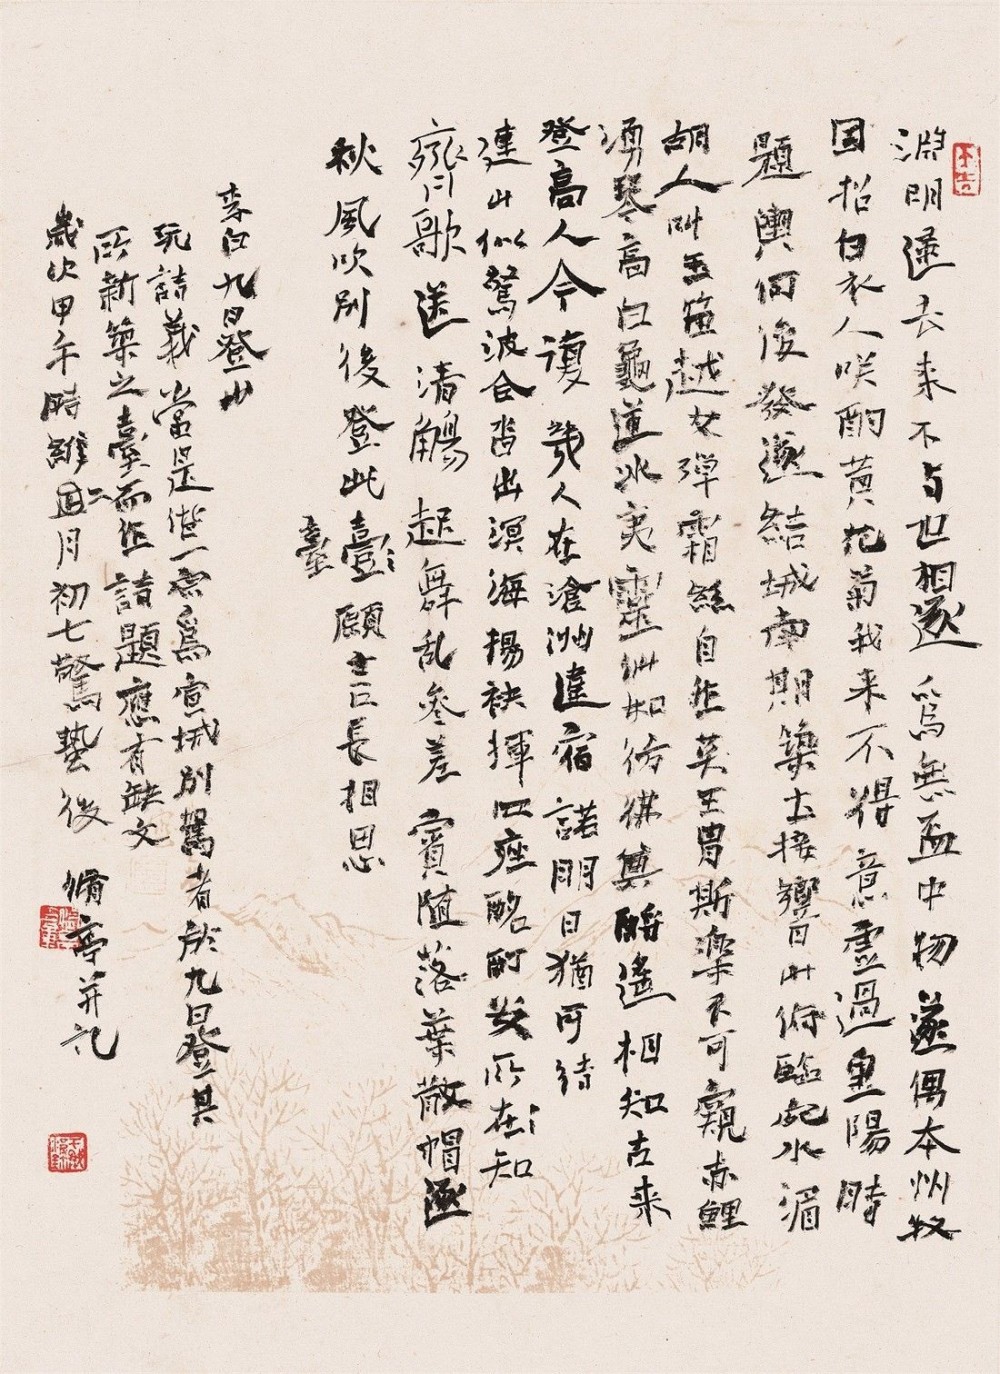 淵明歸去来不与世相逐爲無盃中物遂偶本州牧
因招白衣人咲酌黄花菊我来不得意虚過重陽時
題輿何俊發遂結城南期築土按響山俯臨宛水湄
胡人叫玉笛越女彈霜絲自作英王胄斯樂不可窺赤鯉
湧琴高白龜道冰夷靈仙如彷彿奠酹遥相知古来
登高人今復幾人在滄洲違宿諾明日猶可待
連山似驚波合沓出溟海揚袂揮四座酩酊安所在知
齊歌送清觴起舞乱參差賓随落葉散帽逐
秋風吹別後登此臺願言長相思
臺
李白九日登山
玩詩義當是偕一宗爲宣城別駕者於九日登其
所新築之臺而作詩題應有缺文
歲次甲午時維二月初七驚蟄後脩亭并記